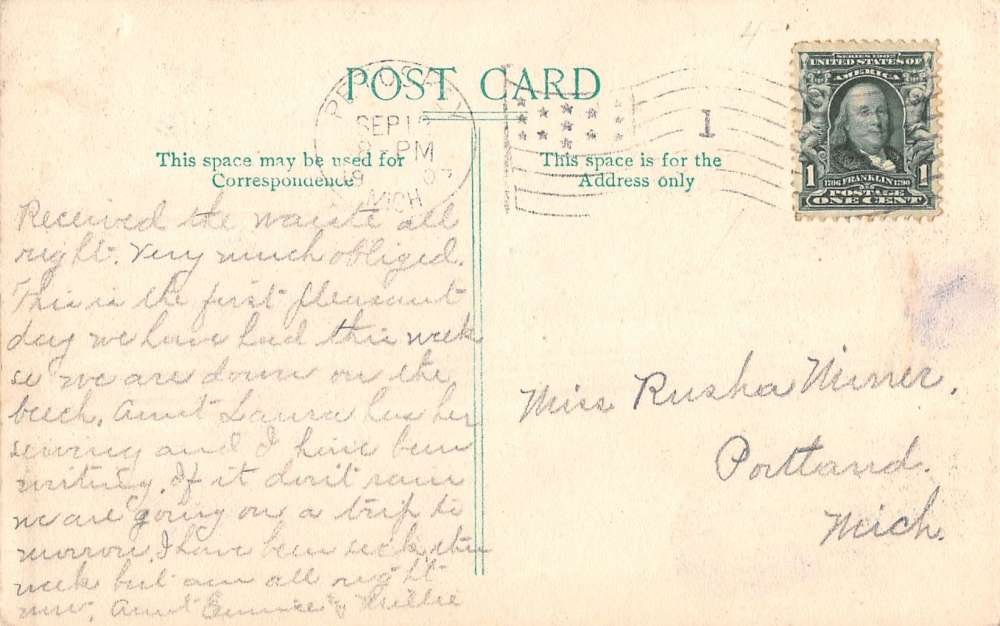 POST CARD
PETOSKEY
SEP 1
8 - PM
19 07
MICH
1
SERIES 1902
UNITED STATES OF
AMERICA
1 1706 FRANKLIN 1790 1
POSTAGE
ONE CENT
This space may be used for
Correspondence
This space is for the
Address only
Received the waists all
right. Very much obliged.
This is the first pleasant
day we have had this week
so we are down on the
beech. Aunt Laura has her
sewing and I have been
writing. If it don't rain
we are going on a trip to
morrow. I have been sick this
week but am all right
now. Aunt Eunice & Millie
Miss Rusha Miner.
Portland.
Mich.